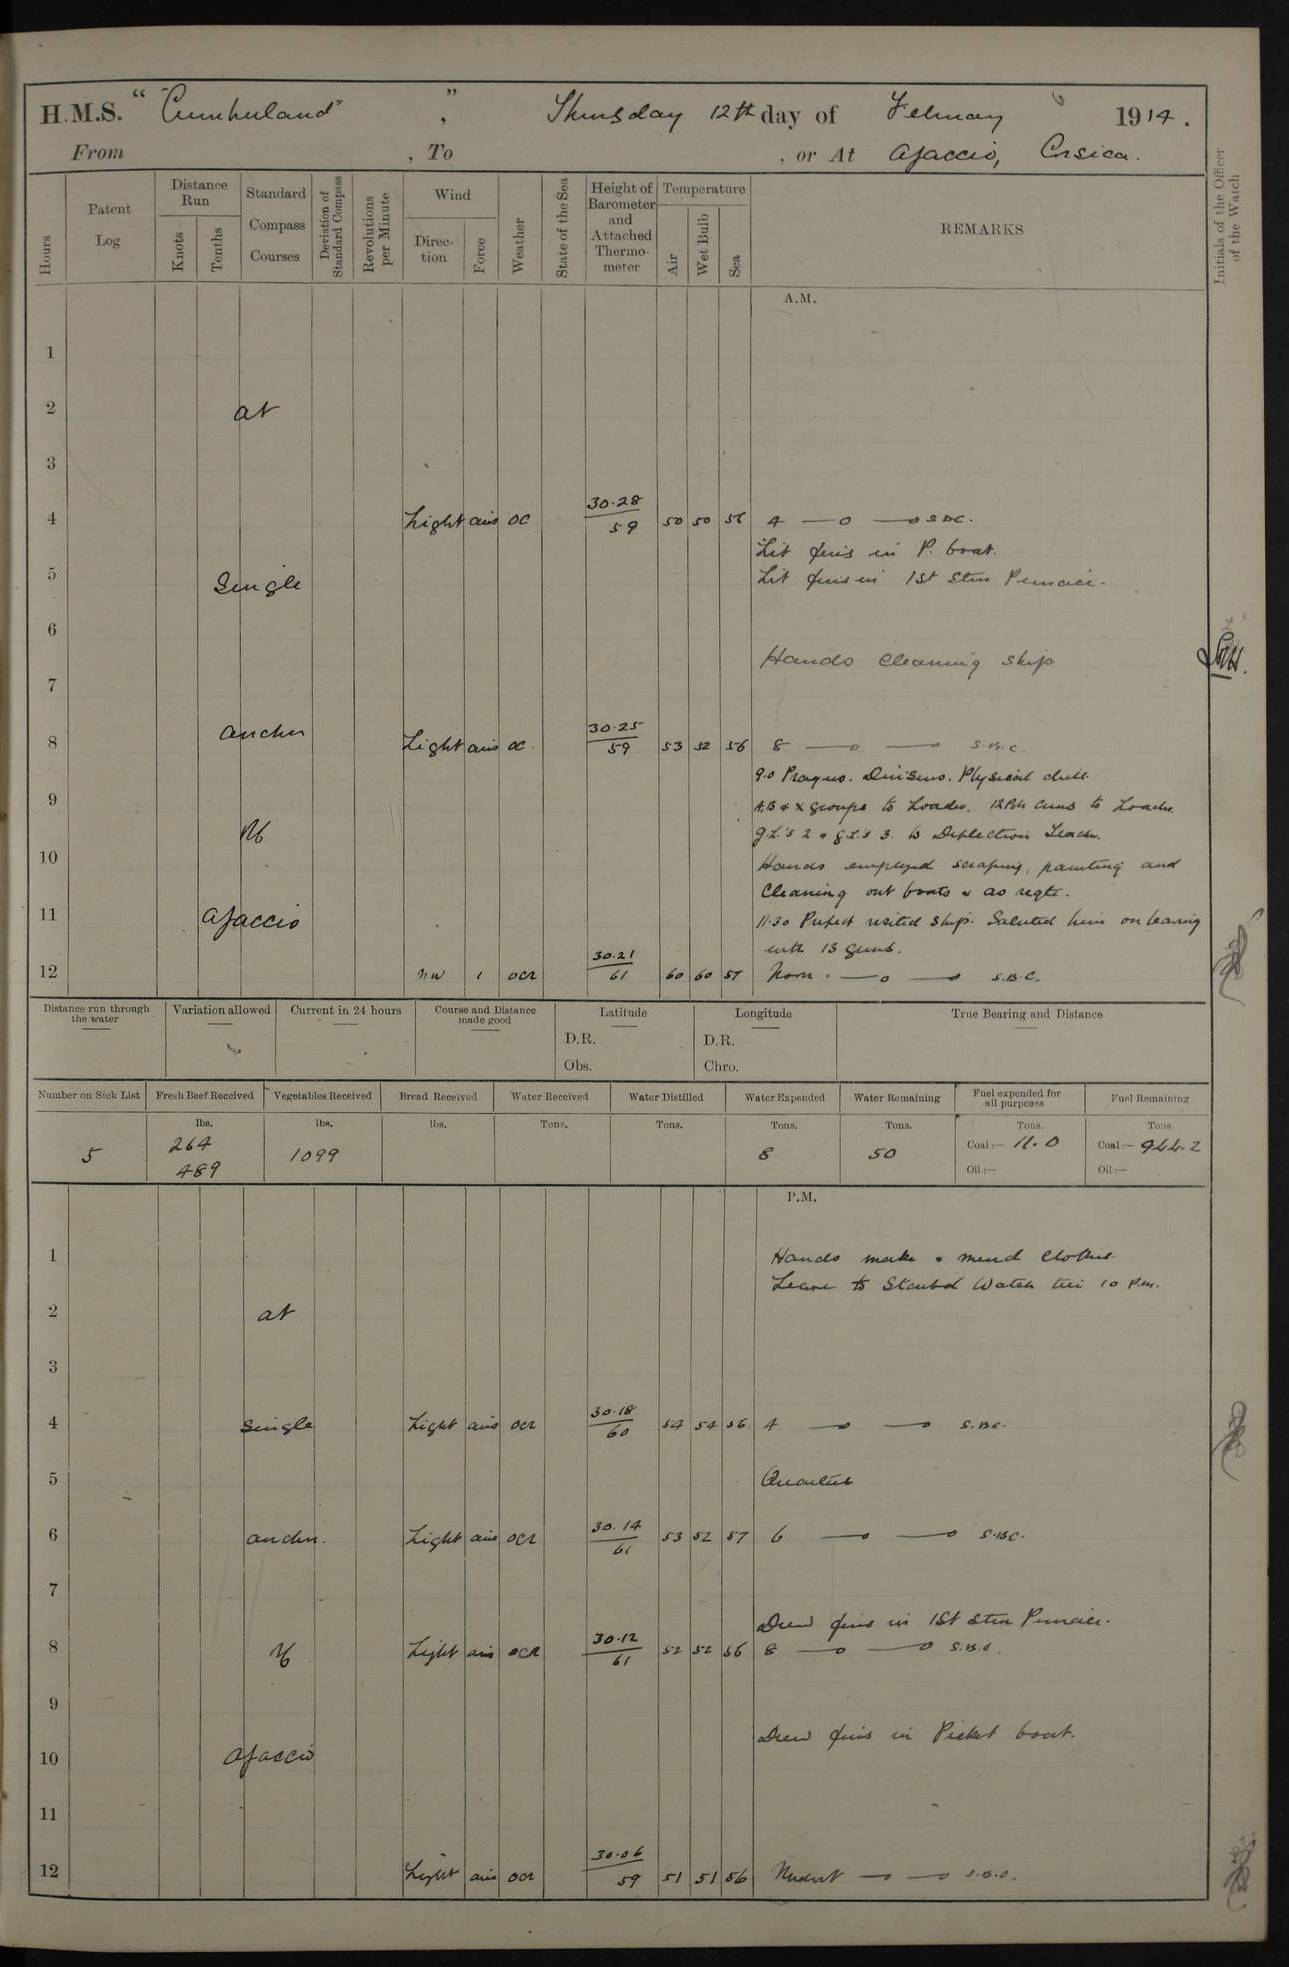 H.M.S. "Cumberland", Thursday 12th day of February 1914.
From , To , or At Ajaccio, Corsica.
Hours
Patent Log
Distance Run
Knots
Tenths
Standard Compass Courses
Deviation of Standard Compass
Revolutions per Minute
Wind
Direction
Force
Weather
State of the Sea
Height of Barometer and Attached Thermometer
Temperature
Air
Wet Bulb
Sea
REMARKS
Initials of the Officer of the Watch
A.M.
1
2 at
3
4 Light airs oc 30.28 59 50 50 56 4 —o —o S.B.C.
Lit fires in P. boat.
5 Single Lit fires in 1st Stm Pinnace.
6
Hands cleaning ship
7
8 anchor Light airs oc 30.25 59 53 52 56 8 —o —o S.B.C.
9.0 Prayers. Divisions. Physical drill.
9 A, B & X groups to Loader. 12 Pdr Guns to Loader.
off G.L.'s 2 & G.L.'s 3 to Deflection Teacher.
10 Hands employed scraping, painting and
Cleaning out boats & as reqte.
11 Ajaccio 11.30 Prefect visited ship. Saluted him on leaving
with 13 guns.
12 NW 1 ocr 30.21 61 60 60 57 Noon. —o —o S.B.C.
Distance run through the water
Variation allowed
Current in 24 hours
Course and Distance made good
Latitude
D.R.
Obs.
Longitude
D.R.
Chro.
True Bearing and Distance
Number on Sick List
5
Fresh Beef Received
lbs.
264
489
Vegetables Received
lbs.
1099
Bread Received
lbs.
Water Received
Tons.
Water Distilled
Tons.
Water Expended
Tons.
8
Water Remaining
Tons.
50
Fuel expended for all purposes
Tons.
Coal:— 11.0
Oil:—
Fuel Remaining
Tons.
Coal:— 944.2
Oil:—
P.M.
1 Hands make & mend clothes
Leave to Starbd Watch till 10 p.m.
2 at
3
4 Single Light airs ocr 30.18 60 54 54 56 4 —o —o S.B.C.
5 Quarters
6 anchor. Light airs ocr 30.14 61 53 52 57 6 —o —o S.B.C.
7
Drew fires in 1st Stm Pinnace.
8 off Light airs ocr 30.12 61 52 52 56 8 —o —o S.B.C.
9
Drew fires in Picket boat.
10 Ajaccio
11
12 Light airs ocr 30.06 59 51 51 56 Midnt —o —o S.B.C.